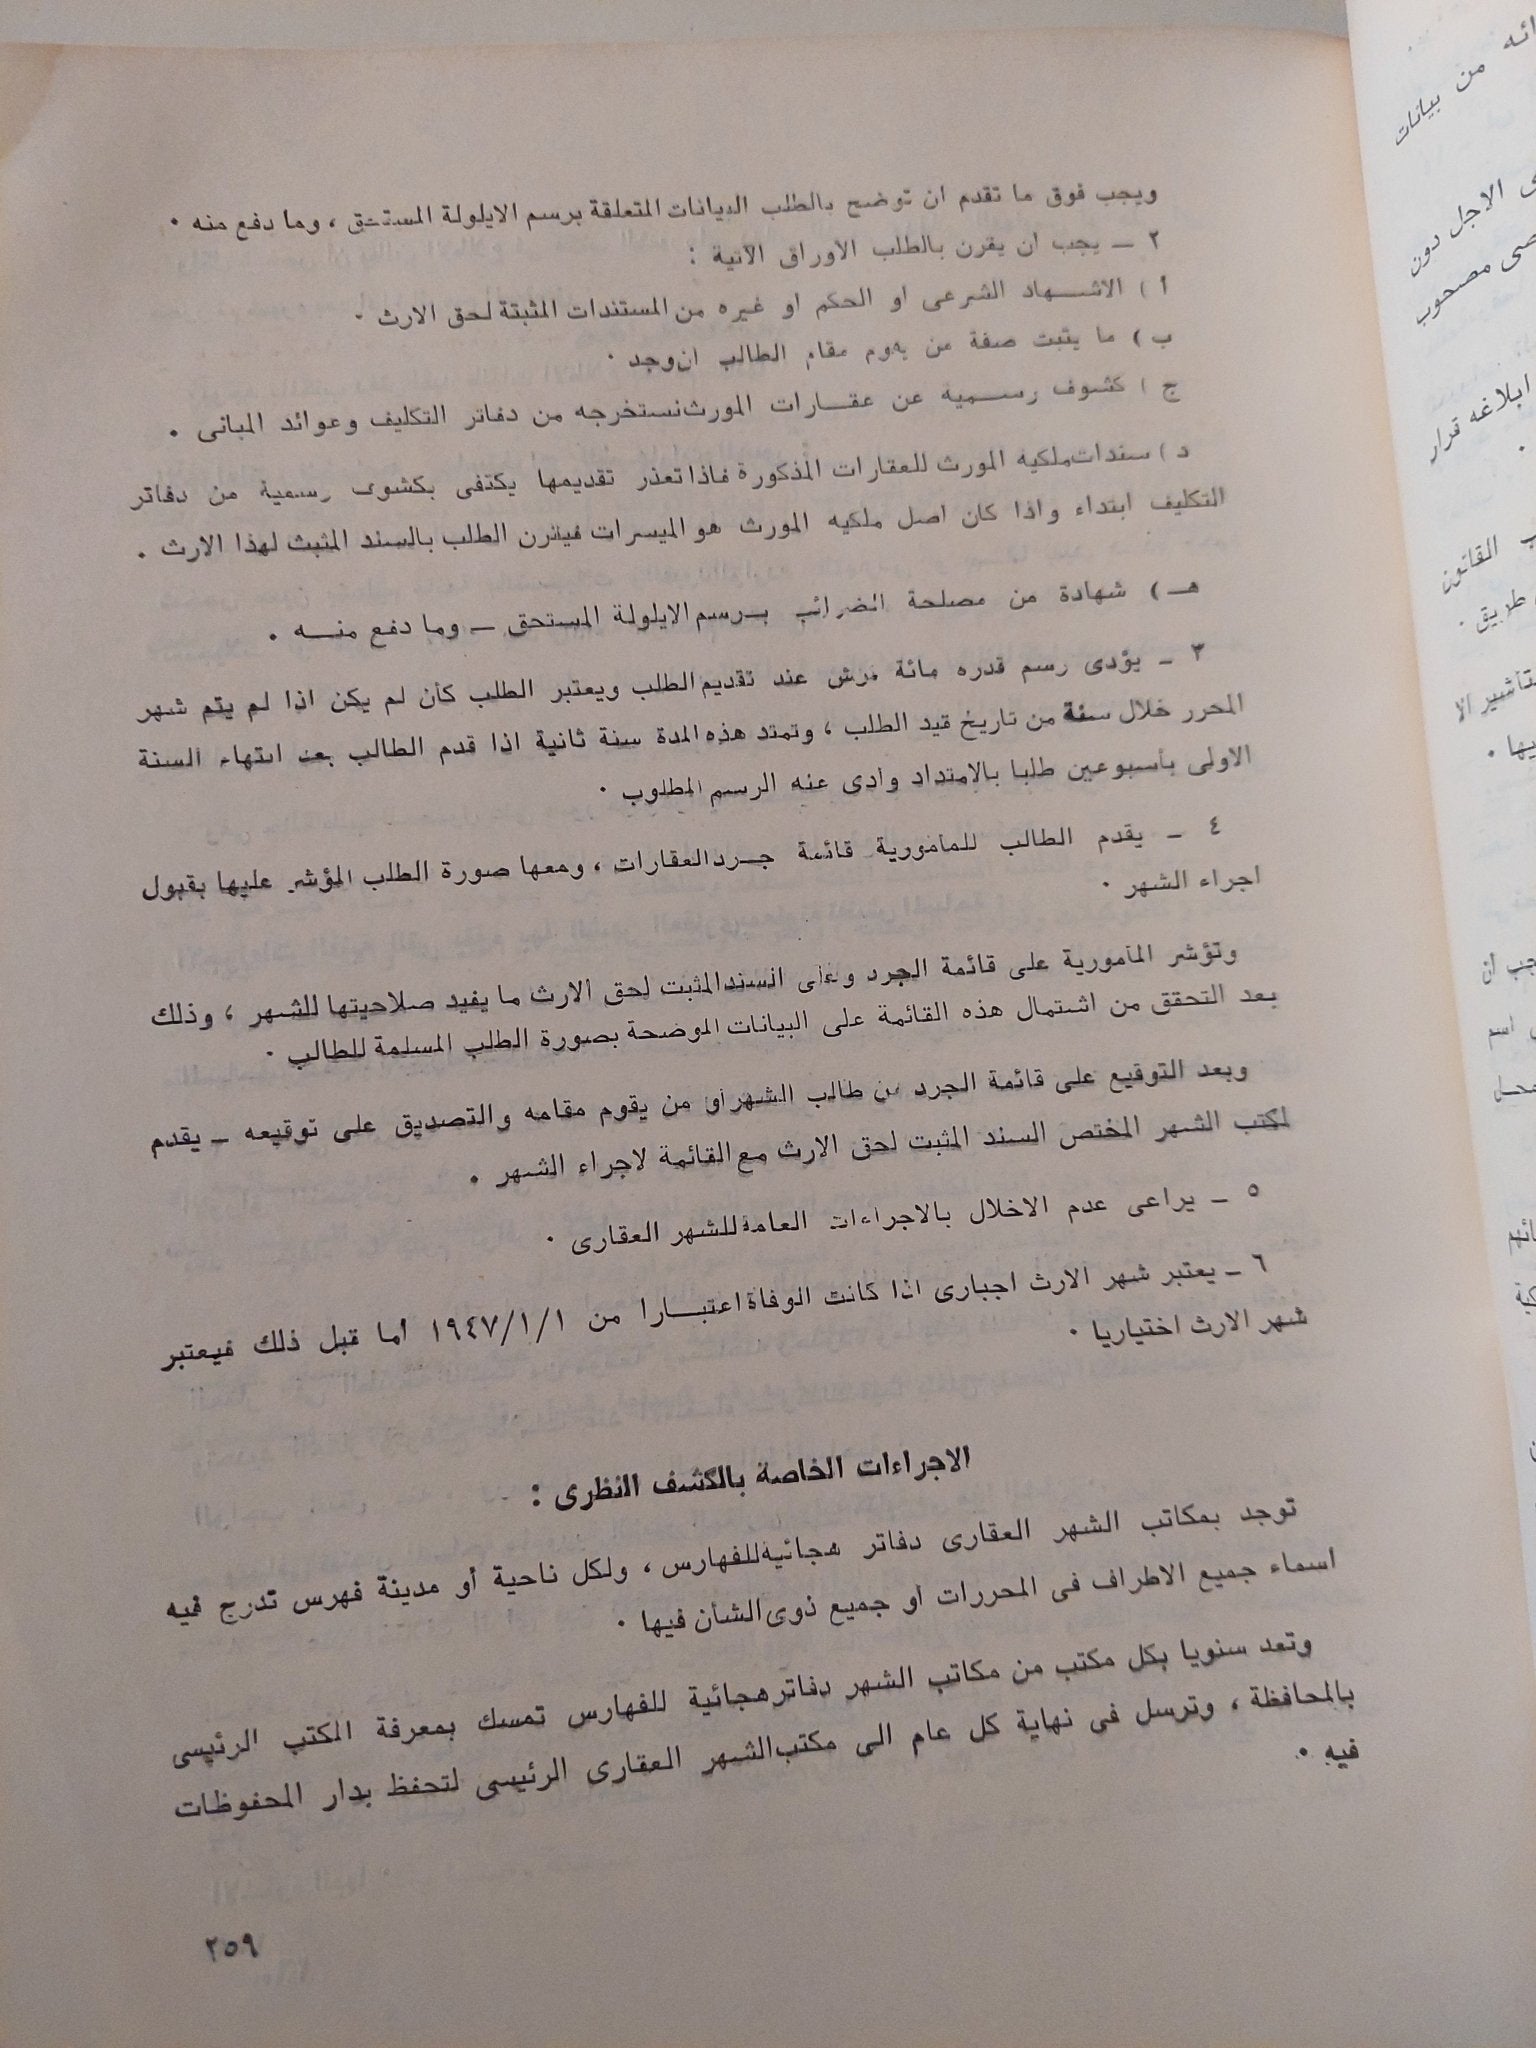 ويجب فوق ما تقدم ان توضح بالطلب البيانات المتعلقة برسم الايلولة المستحق ، وما دفع منه ·
٢ — يجب ان يقرن بالطلب الأوراق الآتية :
أ ) الاشهاد الشرعى او الحكم او غيره من المستندات المثبتة لحق الارث ·
ب ) ما يثبت صفة من يقوم مقام الطالب ان وجد ·
ج ) كشوف رسمية عن عقارات المورث نستخرجه من دفاتر التكليف وعوائد المبانى ·
د ) سندات ملكيه المورث للعقارات المذكورة فاذا تعذر تقديمها يكتفى بكشوف رسمية من دفاتر
التكليف ابتداء واذا كان اصل ملكيه المورث هو الميراث فيقرن الطلب بالسند المثبث لهذا الارث ·
هـ ) شهادة من مصلحة الضرائب برسم الايلولة المستحق — وما دفع منه ·
٣ — يؤدى رسم قدره مائة قرش عند تقديم الطلب ويعتبر الطلب كأن لم يكن اذا لم يتم شهر
المحرر خلال سنة من تاريخ قيد الطلب ، وتمتد هذه المدة سنة ثانية اذا قدم الطالب بعد انتهاء السنة
الاولى بأسبوعين طلبا بالامتداد وأدى عنه الرسم المطلوب ·
٤ — يقدم الطالب للمأمورية قائمة جرد العقارات ، ومعها صورة الطلب المؤشر عليها بقبول
اجراء الشهر ·
وتؤشر المأمورية على قائمة الجرد وعلى السند المثبت لحق الارث ما يفيد صلاحيتها للشهر ، وذلك
بعد التحقق من اشتمال هذه القائمة على البيانات الموضحة بصورة الطلب المسلمة للطالب ·
وبعد التوقيع على قائمة الجرد من طالب الشهر أو من يقوم مقامه والتصديق على توقيعه — يقدم
لمكتب الشهر المختص السند المثبت لحق الارث مع القائمة لاجراء الشهر ·
٥ — يراعى عدم الاخلال بالاجراءات العامة للشهر العقارى ·
٦ — يعتبر شهر الارث اجبارى اذا كانت الوفاة اعتبارا من ١٩٤٧/١/١ أما قبل ذلك فيعتبر
شهر الارث اختياريا ·
الاجراءات الخاصة بالكشف النظرى :
توجد بمكاتب الشهر العقارى دفاتر هجائية للفهارس ، ولكل ناحية أو مدينة فهرس تدرج فيه
أسماء جميع الاطراف فى المحررات أو جميع ذوى الشأن فيها ·
وتعد سنويا بكل مكتب من مكاتب الشهر دفاتر هجائية للفهارس تمسك بمعرفة المكتب الرئيسى
بالمحافظة ، وترسل فى نهاية كل عام الى مكتب الشهر العقارى الرئيسى لتحفظ بدار المحفوظات
فيه ·
٢٥٩
من بيانات
الاجل دون
مصحوب
ابلاغه قرار
القانون
طريق ·
اسم